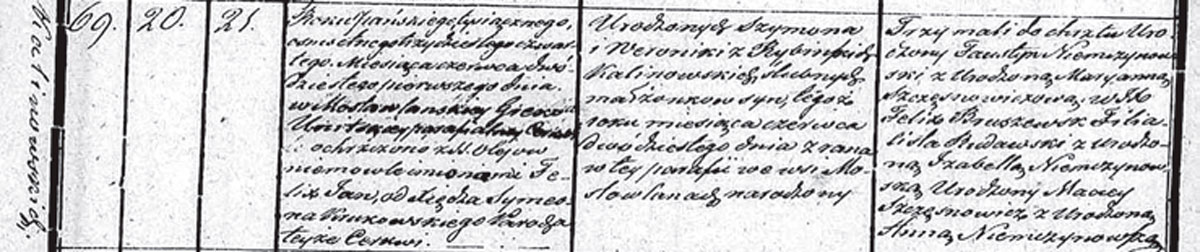 Kalinowskich
69.
20.
21.
Roku Pańskiego tysiącznego,
ośmsetnego trzydziestego czwar-
tego. Miesiąca czerwca dwó-
dziestego pierwszego dnia.
w Mosław lanskiey Grecko
Unitskiey parafialney Cerkwi
ochrzczono z SS. Olejów
niemowle imionami Fe-
lix Jan, od Xiędza Symeo-
na Krukowskiego Parocha
teyże Cerkwi.
Urodzonych Szymona
i Weroniki z Rybinskich
Kalinowskich ślubnych
małżonkow syn, tegoż
roku miesiąca czerwca
dwódziestego dnia z rana
w tey parafii we wsi Mo-
sławlanach narodzony
Trzymali do chrztu Uro-
dzony Faustyn Niemczynow-
ski z Urodzoną Maryanną
Szczęsnowiczową, w
Felix Bruszewsk
Rudawski z Urodzo-
ną Izabellą Niemczynow-
ską Urodzony Maciey
Szczęsnowicz z Urodzoną
Anną Niemczynowską